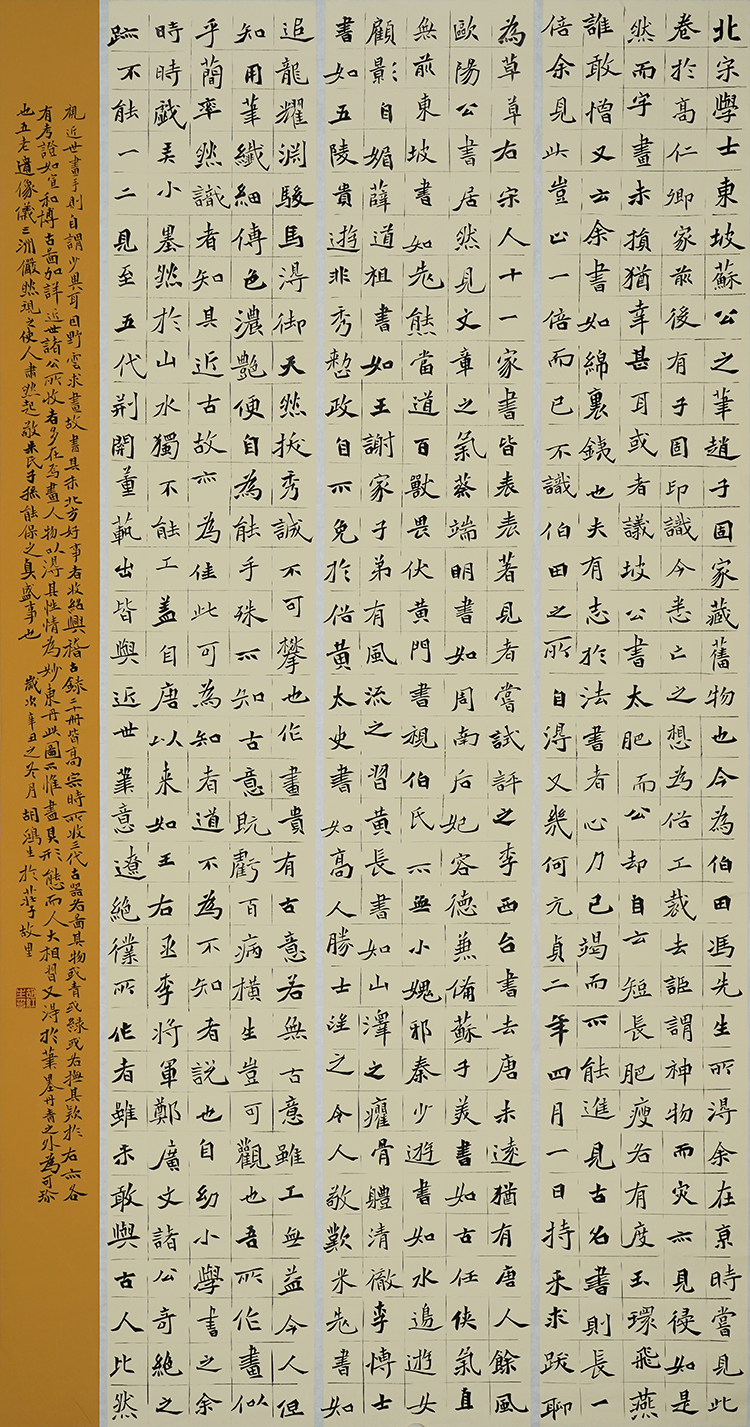 北宋學士東坡蘇公之筆趙子固家藏舊物也今為伯田馮先生所得余在京時嘗見此
卷於高仁卿家前後有子固印識今悉亡之想為俗工裁去詎謂神物而灾亦見侵如是
然而字畫未損猶幸甚耳或者議坡公書太肥而公却自云短長肥瘦各有度玉環飛燕
誰敢憎又云余書如綿裏鐵也夫有志於法書者心力已竭而不能進見古名書則長一
倍余見此豈止一倍而已不識伯田之所自得又幾何元貞二年四月一日持来求跋聊
為草草右宋人十一家書皆表表著見者嘗試評之李西台書去唐未遠猶有唐人餘風
歐陽公書居然見文章之氣蔡端明書如周南后妃容德兼備蘇子美書如古任俠氣直
無前東坡書如老熊當道百獸畏伏黄門書視伯氏不無小愧邪秦少遊書如水邊遊女
顧影自媚薛道祖書如王謝家子弟有風流之習黄長書如山澤之癯骨體清徹李博士
書如五陵貴遊非秀整政自不免於俗黄太史書如高人勝士望之令人敬歎米老書如
追龍耀渊駿馬得御天然拔秀誠不可攀也作畫貴有古意若無古意雖工無益今人但
知用筆纖細傅色濃艷便自為能手殊不知古意既虧百病横生豈可觀也吾所作畫似
乎蕳率然識者知其近古故亦為佳此可為知者道不為不知者説也自幼小學書之余
時時戯弄小墨然於山水獨不能工盖自唐以来如王右丞李將軍鄭廣文諸公奇絶之
跡不能一二見至五代荆関董范出皆與近世筆意遼絶僕所作者雖未敢與古人比然
視近世畫手則自謂少異耳因野雲求畫故書其末北方好事者收紹興稽古録二十冊皆高宗時所收三代古器若圖其物或青或緑或右撫其款於右亦各
有考證如宣和博古圖加詳近世諸公所收者多在焉畫人物以得其性情為妙東丹此圖不惟盡其形態而人犬相習又得於筆墨丹青之外為可珍
也五老遺像儀三洲儼然視之使人肅然起敬朱氏子孫能保之真盛事也 歳次辛丑之冬月胡鴻生於莊子故里